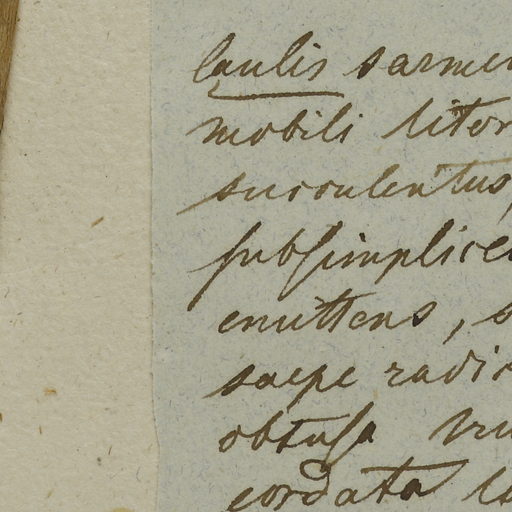 Caulis sarmen
mobili litor
succulentus,
subsimplice
emittens, s
saepe radic
obtusa
cordata